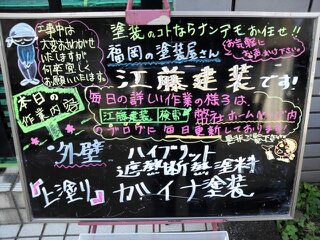 工事中は
大変おめいわく
いたしますが
何卒宜しく
お願いいたします
塗装のコトならナンデモお任せ!!
福岡の塗装屋さん
お気軽に
お声かけ下さい
江藤建装です!
本日の
作業内容
毎日の詳しい作業の様子は、
江藤建装 検索 弊社ホームページ内
のブログに毎日更新しております!
是非ご覧下さい
外壁
ハイブリット
遮熱断熱塗料
『上塗り』
ガイナ塗装